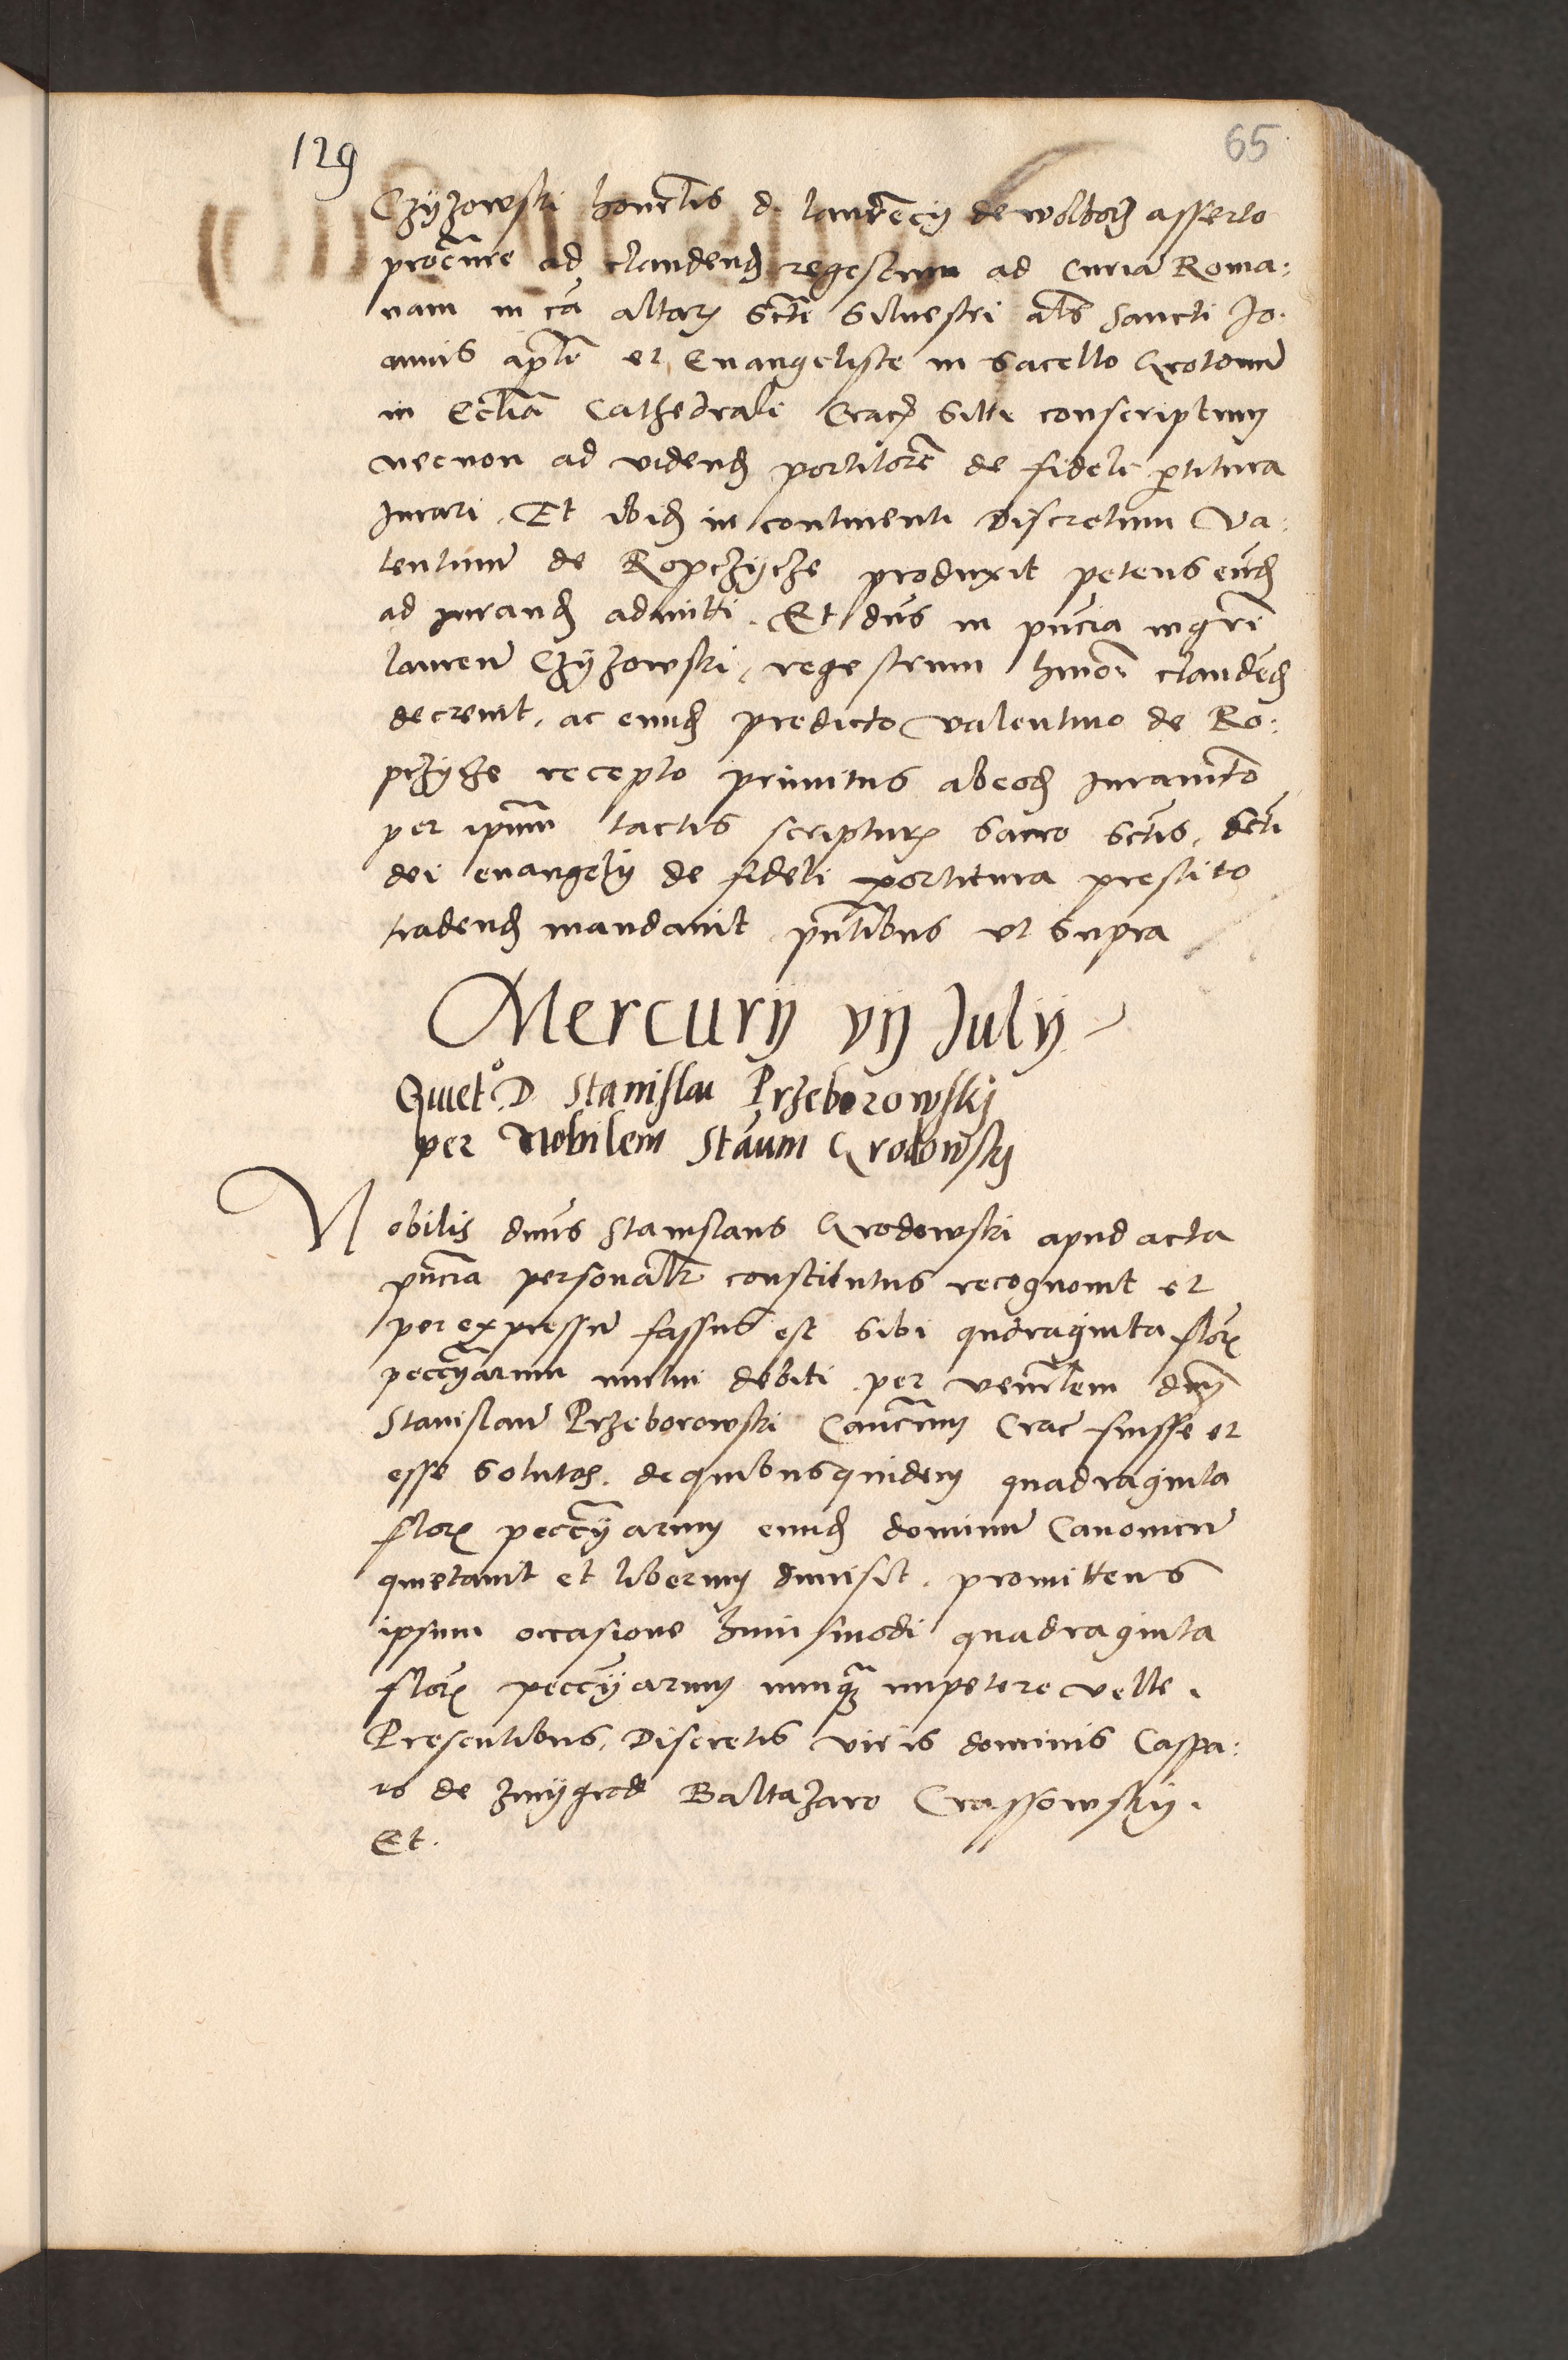 129
65
Czÿzowski honorabilis d. laurẽcÿ de wolborz asserto
procũre ad claudenđ regestrum ad Curiã Roma:
nam in cã altaris Sctĩ Siluestri als Sancti Jo.
annis apłi et Euangeliste in sacello Grotonũ
in Ecłiã Cathedrali Crać siti conscriptum
necnon ad videnđ portitorẽ de fideli portitura
Jurari. Et ibiđ in continenti Discretum Va:
lentinũ de Ropczÿcze produxit petens eunđ
ad jurandđ admitti. Et dns in pñcia ingrẽ
lauren̄ Czÿzowski, regestrum hmõi claudẽđ
decreuit, ac eunđ predicto valentino de Ro:
pczÿcze recepto primitus abeođ Juramẽto
per ipsum tactis scripturis sacro sctis, scti
dei euangelÿ de fideli portitura prestito
tradenđ mandauit pñtibus vt supra
Mercurÿ vÿ Julÿ
Quietº. D Stanislai Przeborowskj
per Nobilem Staum Grodowskj
Nobilis dnus Stanislaus Grodowski apud acta
pñcia personałr constitutus recognouit et
per expressũ fassus est sibi qudraginta floř
peccÿarum mutui debiti per venerłem dnum
Stanislaũ Przeborowski Cancrum Crac fuisse et
esse solutos. de quibusquidem quadraginta
floř peccÿarum eunđ dominũ Canonicũ
quietauit et liberum dimisit. promittens
ipsum occasione huiusmodi quadraginta
floř peccÿarum nunq̃ impetere velle.
Presentibus, Discretis viris dominis Caspa:
ro de zmÿgrod Baltazaro Crassowskÿ.
Et.